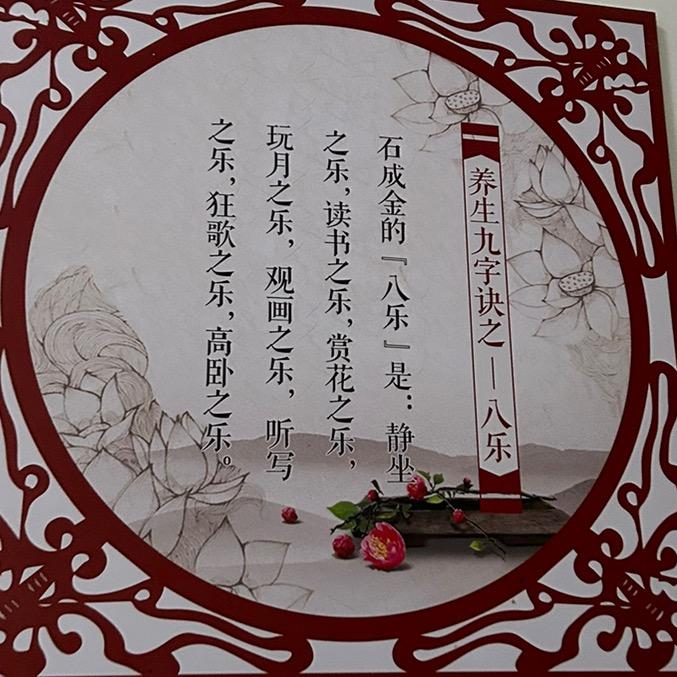 养生九字诀之——八乐
石成金的『八乐』是：静坐
之乐，读书之乐，赏花之乐，
玩月之乐，观画之乐，听写
之乐，狂歌之乐，高卧之乐。